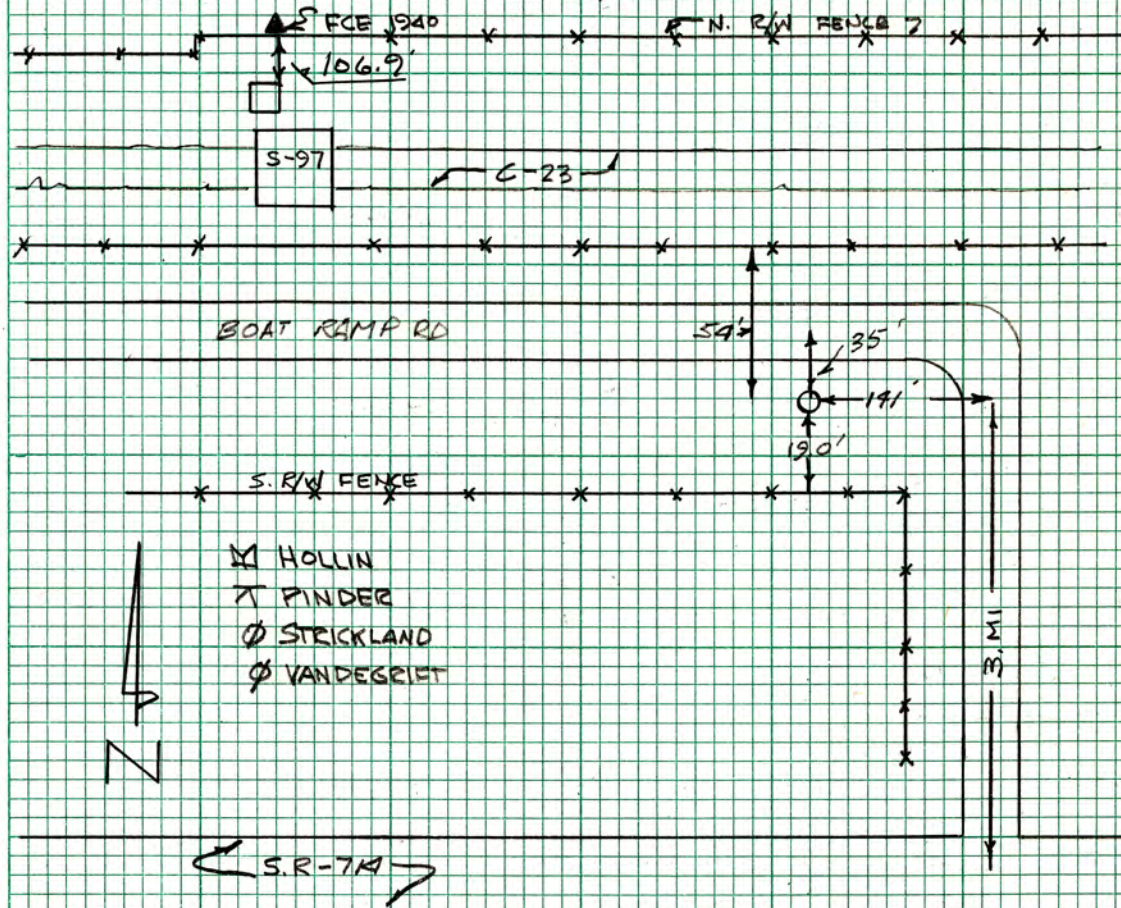 FCE 1940
N. R/W FENCE
106.9'
S-97
C-23
BOAT RAMP RD
54'
35'
141'
19.0'
S. R/W FENCE
HOLLIN
PINDER
Ø STRICKLAND
Ø VANDEGRIFT
3. MI
N
S.R-714